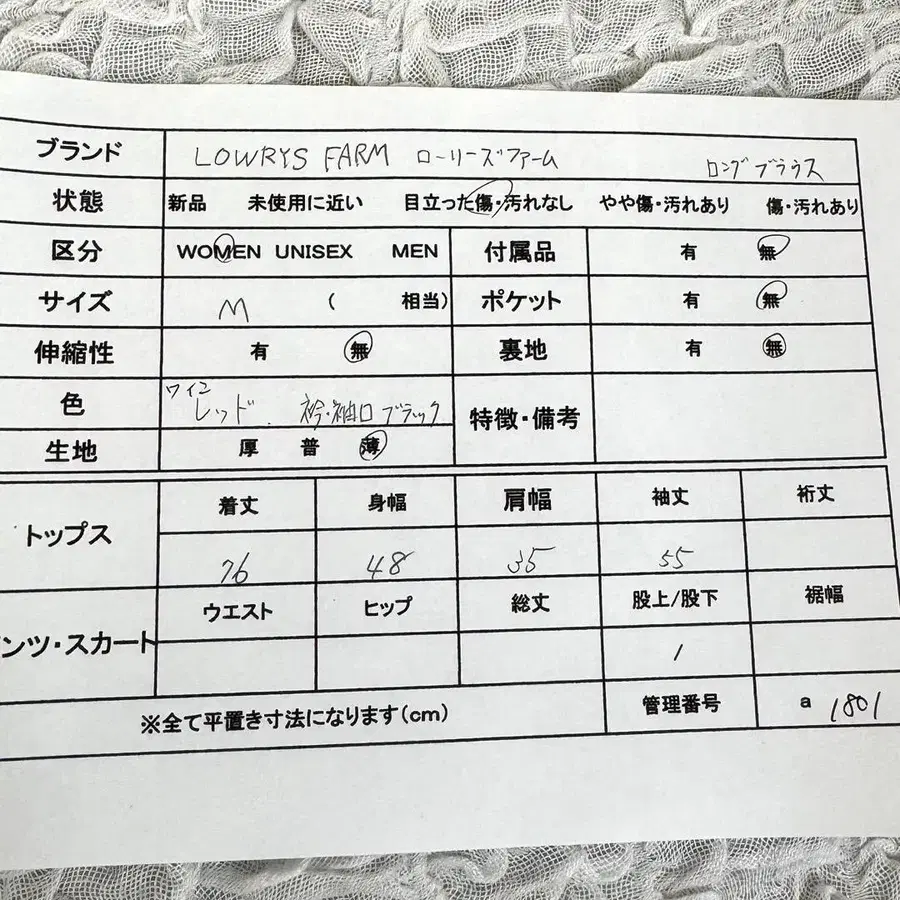 ブランド LOWRYS FARM ローリーズファーム ロングブラウス
状態 新品 未使用に近い 目立った傷・汚れなし やや傷・汚れあり 傷・汚れあり
区分 WOMEN UNISEX MEN 付属品 有 無
サイズ M ( 相当) ポケット 有 無
伸縮性 有 無 裏地 有 無
色 ワイン レッド. 衿・袖口 ブラック 特徴・備考
生地 厚 普 薄
トップス 着丈 身幅 肩幅 袖丈 裄丈
76 48 35 55
ンツ・スカート ウエスト ヒップ 総丈 股上/股下 裾幅
/
※全て平置き寸法になります(cm) 管理番号 a 1801